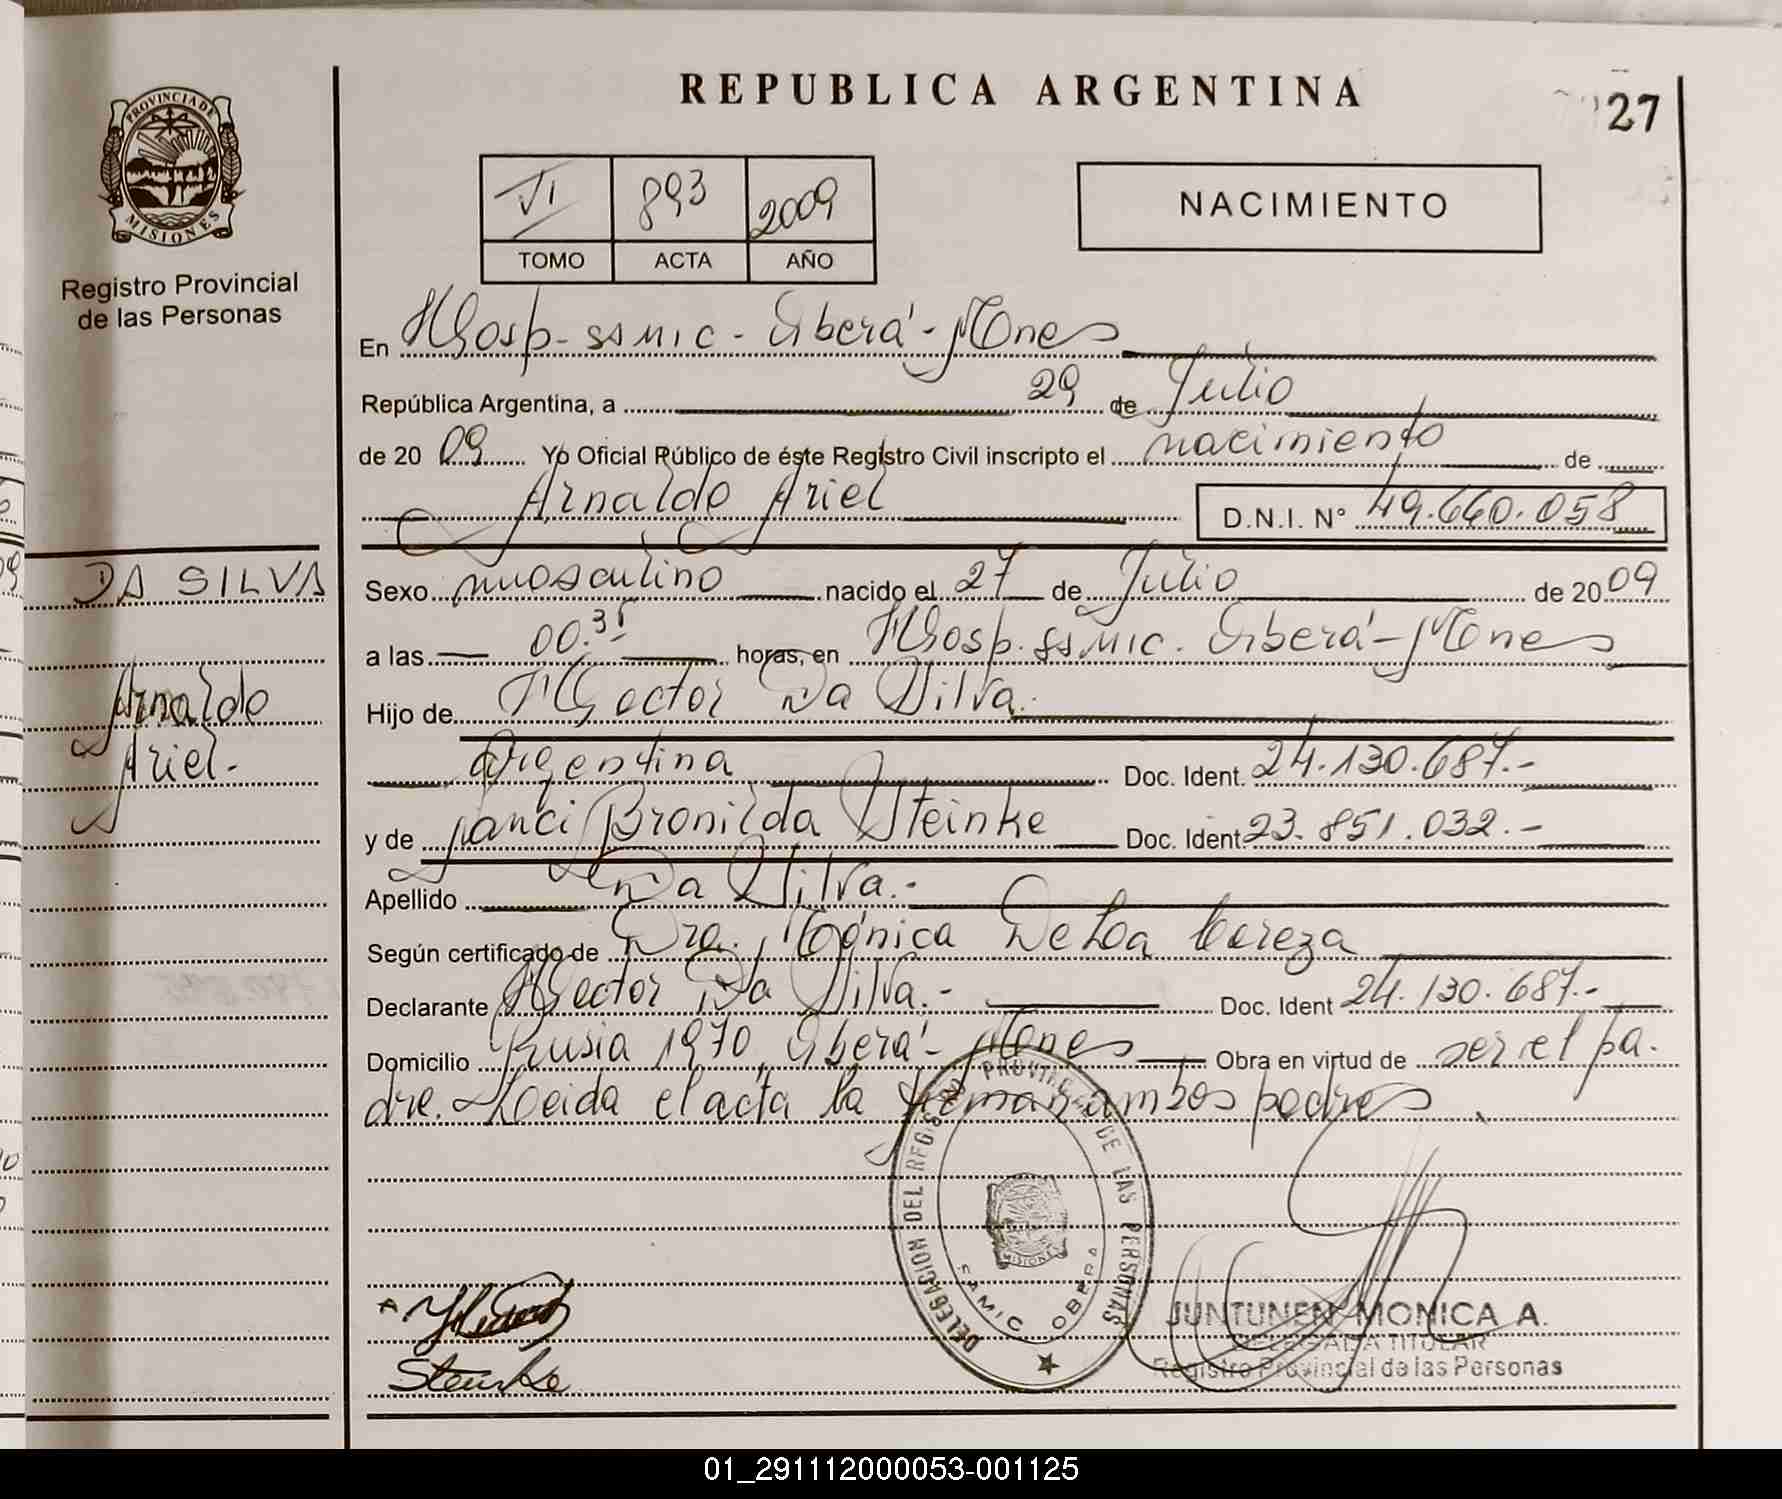 REPUBLICA ARGENTINA
27
PROVINCIA DE MISIONES
Registro Provincial
de las Personas
VI 893 2009
TOMO ACTA AÑO
NACIMIENTO
En Hosp. SAMIC - Oberá - Mnes
República Argentina, a 29 de Julio
de 2009 Yo Oficial Público de éste Registro Civil inscripto el nacimiento de
Arnaldo Ariel D.N.I. N° 49.660.058
DA SILVA
Arnaldo
Ariel.-
Sexo masculino nacido el 27 de Julio de 2009
a las 00.35 horas, en Hosp. SAMIC. Oberá - Mnes
Hijo de Hector Da Silva.
Argentina Doc. Ident. 24.130.687.-
y de Nanci Bronilda Steinke Doc. Ident 23.851.032.-
Apellido Da Silva.-
Según certificado de Dra. Mónica De Loa
Declarante Hector Da Silva.- Doc. Ident 24.130.687.-
Domicilio Rusia 1970, Oberá - Mnes Obra en virtud de ser el pa-
dre. Leida el acta la firman ambos padres
DELEGACION DEL REGISTRO PROVINCIAL DE LAS PERSONAS
MISIONES
SAMIC OBERA
Steinke
JUNTUNEN MONICA A.
DELEGADA TITULAR
Registro Provincial de las Personas
01_291112000053-001125